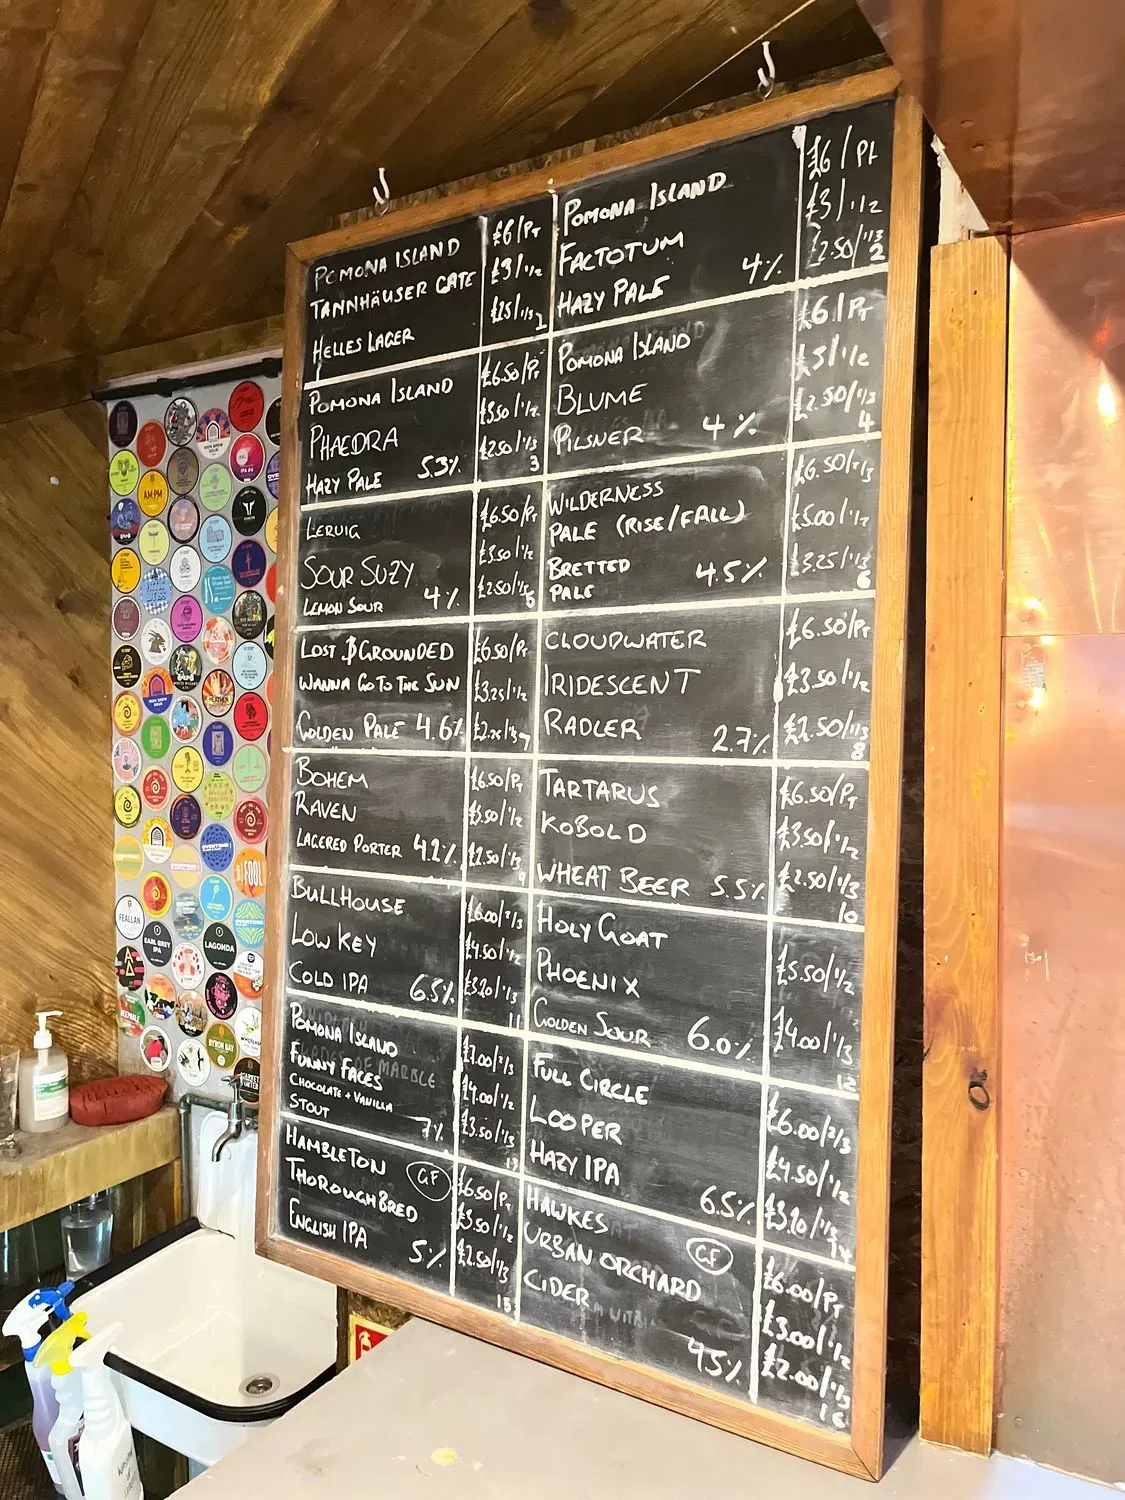 POMONA ISLAND
TANNHÄUSER GATE
HELLES LAGER
£6/PT
£3/1/2
1
POMONA ISLAND
FACTOTUM
HAZY PALE 4%
£6/PT
£3/1/2
£2.50/1/3
2
POMONA ISLAND
PHAEDRA
HAZY PALE 5.3%
£6.50/PT
£3.50/1/2
£2.50/1/3
3
POMONA ISLAND
BLUME
PILSNER 4%
£6/PT
£3/1/2
£2.50/1/3
4
LERVIG
SOUR SUZY
LEMON SOUR 4%
£6.50/PT
£3.50/1/2
£2.50/1/3
5
WILDERNESS
PALE (RISE/FALL)
BRETTED 4.5%
PALE
£6.50/2/3
£5.00/1/2
£3.25/1/3
6
LOST & GROUNDED
WANNA GO TO THE SUN
GOLDEN PALE 4.6%
£6.50/PT
£3.25/1/2
£2.25/1/3
7
CLOUDWATER
IRIDESCENT
RADLER 2.7%
£6.50/PT
£3.50/1/2
£2.50/1/3
8
BOHEM
RAVEN
LAGERED PORTER 4.2%
£6.50/PT
£3.50/1/2
£2.50/1/3
9
TARTARUS
KOBOLD
WHEAT BEER 5.5%
£6.50/PT
£3.50/1/2
£2.50/1/3
10
BULLHOUSE
LOW KEY
COLD IPA 6.5%
£6.00/2/3
£4.50/1/2
£3.20/1/3
11
HOLY GOAT
PHOENIX
GOLDEN SOUR 6.0%
£5.50/1/2
£4.00/1/3
12
POMONA ISLAND
FUNNY FACES
CHOCOLATE + VANILLA
STOUT 7%
£7.00/2/3
£4.00/1/2
£3.50/1/3
13
FULL CIRCLE
LOOPER
HAZY IPA
6.5%
£6.00/2/3
£4.50/1/2
£3.20/1/3
14
HAMBLETON
GF
THOROUGHBRED
ENGLISH IPA 5%
£6.50/PT
£3.50/1/2
£2.50/1/3
15
HAWKES
URBAN ORCHARD
GF
CIDER
4.5%
£6.00/PT
£3.00/1/2
£2.00/1/3
16
AM:PM
FEALLAN
EARL GREY
IPA
LAGONDA
BYRON BAY